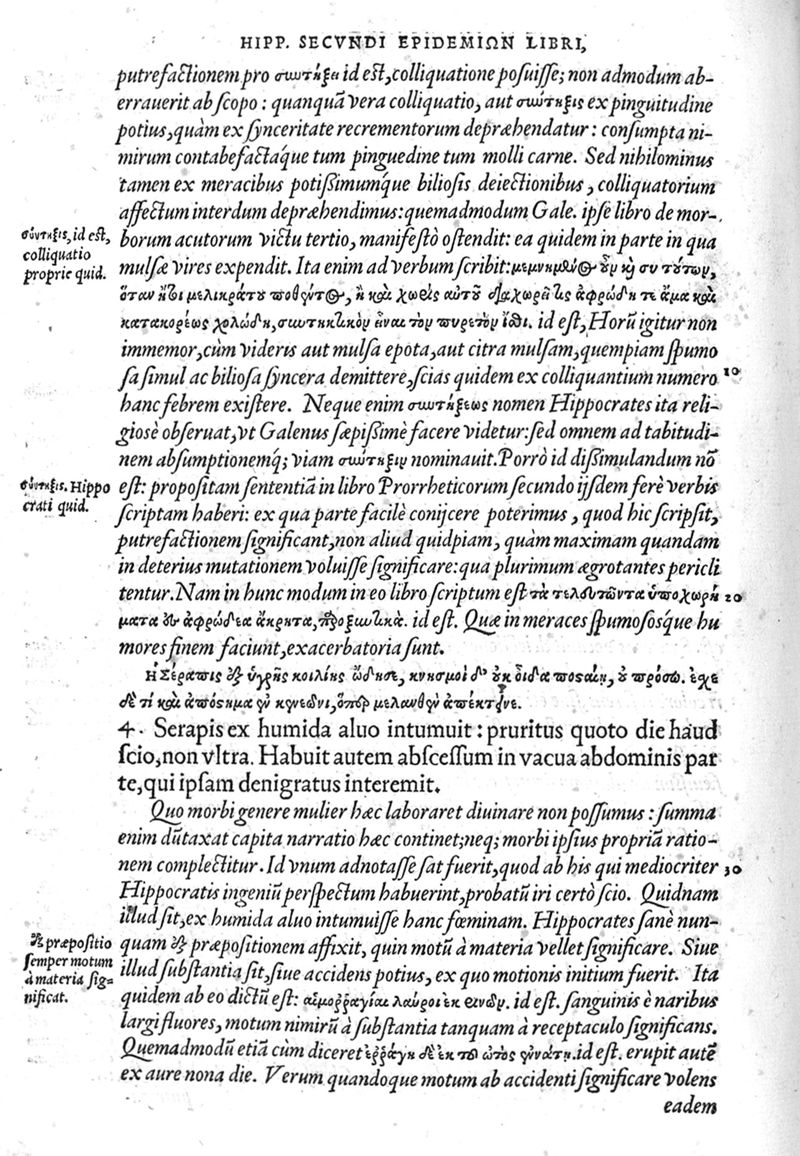 HIPP. SECVNDI EPIDEMIΩN LIBRI,
putrefactionem pro σωτηξη id est, colliquatione posuisse; non admodum ab-
errauerit ab scopo: quanquā vera colliquatio, aut σωτηξις ex pinguitudine
potius, quàm ex synceritate recrementorum depræhendatur: consumpta ni-
mirum contabefactáque tum pinguedine tum molli carne. Sed nihilominus
tamen ex meracibus potissimumque biliosis deiectionibus, colliquatorium
affectum interdum depræhendimus: quemadmodum Gale. ipse libro de mor-
σύντηξις, id est,
colliquatio
proprie quid.
borum acutorum victu tertio, manifestò ostendit: ea quidem in parte in qua
mulsæ vires expendit. Ita enim ad verbum scribit: μεμνημένος οὖν καὶ συ τούτων,
ὅταν ἤτοι μελικράτου ποθέντος, ἢ καὶ χωρὶς αὐτοῦ διαχωρῇ τις ἀφρώδη τε ἅμα καὶ
κατακορέως χολώδη, σωτηκτικὸν εἶναι τὸν πυρετὸν ἴσθι. id est, Horū igitur non
immemor, cùm videris aut mulsa epota, aut citra mulsam, quempiam spumo
sa simul ac biliosa syncera demittere, scias quidem ex colliquantium numero 10
hanc febrem existere. Neque enim σωτήξεως nomen Hippocrates ita reli-
giosè obseruat, vt Galenus sæpissimè facere videtur: sed omnem ad tabitudi-
nem absumptionemq; viam σώτηξιν nominauit. Porrò id dissimulandum nō
σύντηξις. Hippo
crati quid.
est: propositam sententiā in libro Prorrheticorum secundo ijsdem ferè verbis
scriptam haberi: ex qua parte facilè conijcere poterimus, quod hic scripsit,
putrefactionem significant, non aliud quidpiam, quàm maximam quandam
in deterius mutationem voluisse significare: qua plurimum ægrotantes pericli
tentur. Nam in hunc modum in eo libro scriptum est τὰ τελευτῶντα ὑποχωρή 20
ματα ἐς ἀφρώδεα ἄκρητα, παροξυντικά. id est. Quæ in meraces spumosósque hu
mores finem faciunt, exacerbatoria sunt.
Η Σέραπις ἐξ ὑγρῆς κοιλίης ᾤδησε, κνησμοὶ δ' οὐκ οἶδα ποσταίῃ, οὐ πρόσω. ἔχε
δὲ τί καὶ ἀπόστημα ἐν κενεῶνι, ὅπερ μελανθὲν ἀπέκτεινε.
4. Serapis ex humida aluo intumuit: pruritus quoto die haud
scio, non vltra. Habuit autem abscessum in vacua abdominis par
te, qui ipsam denigratus interemit.
Quo morbi genere mulier hæc laboraret diuinare non possumus: summa
enim dūtaxat capita narratio hæc continet; neq; morbi ipsius propriā ratio-
nem complectitur. Id vnum adnotasse sat fuerit, quod ab his qui mediocriter 30
Hippocratis ingeniū perspectum habuerint, probatū iri certò scio. Quidnam
illud sit, ex humida aluo intumuisse hanc fœminam. Hippocrates sanè nun-
ἐξ præpositio
semper motum
à materia sig=
nificat.
quam ἐξ præpositionem affixit, quin motū à materia vellet significare. Siue
illud substantia sit, siue accidens potius, ex quo motionis initium fuerit. Ita
quidem ab eo dictū est: αἱμορραγίαι λαῦροι ἐκ ῥινῶν. id est. sanguinis è naribus
largi fluores, motum nimirū à substantia tanquam à receptaculo significans.
Quemadmodū etiā cùm diceret ἐρράγη δὲ ἐκ τοῦ ὠτὸς ἐνάτῃ. id est. erupit autē
ex aure nona die. Verum quandoque motum ab accidenti significare volens
eadem